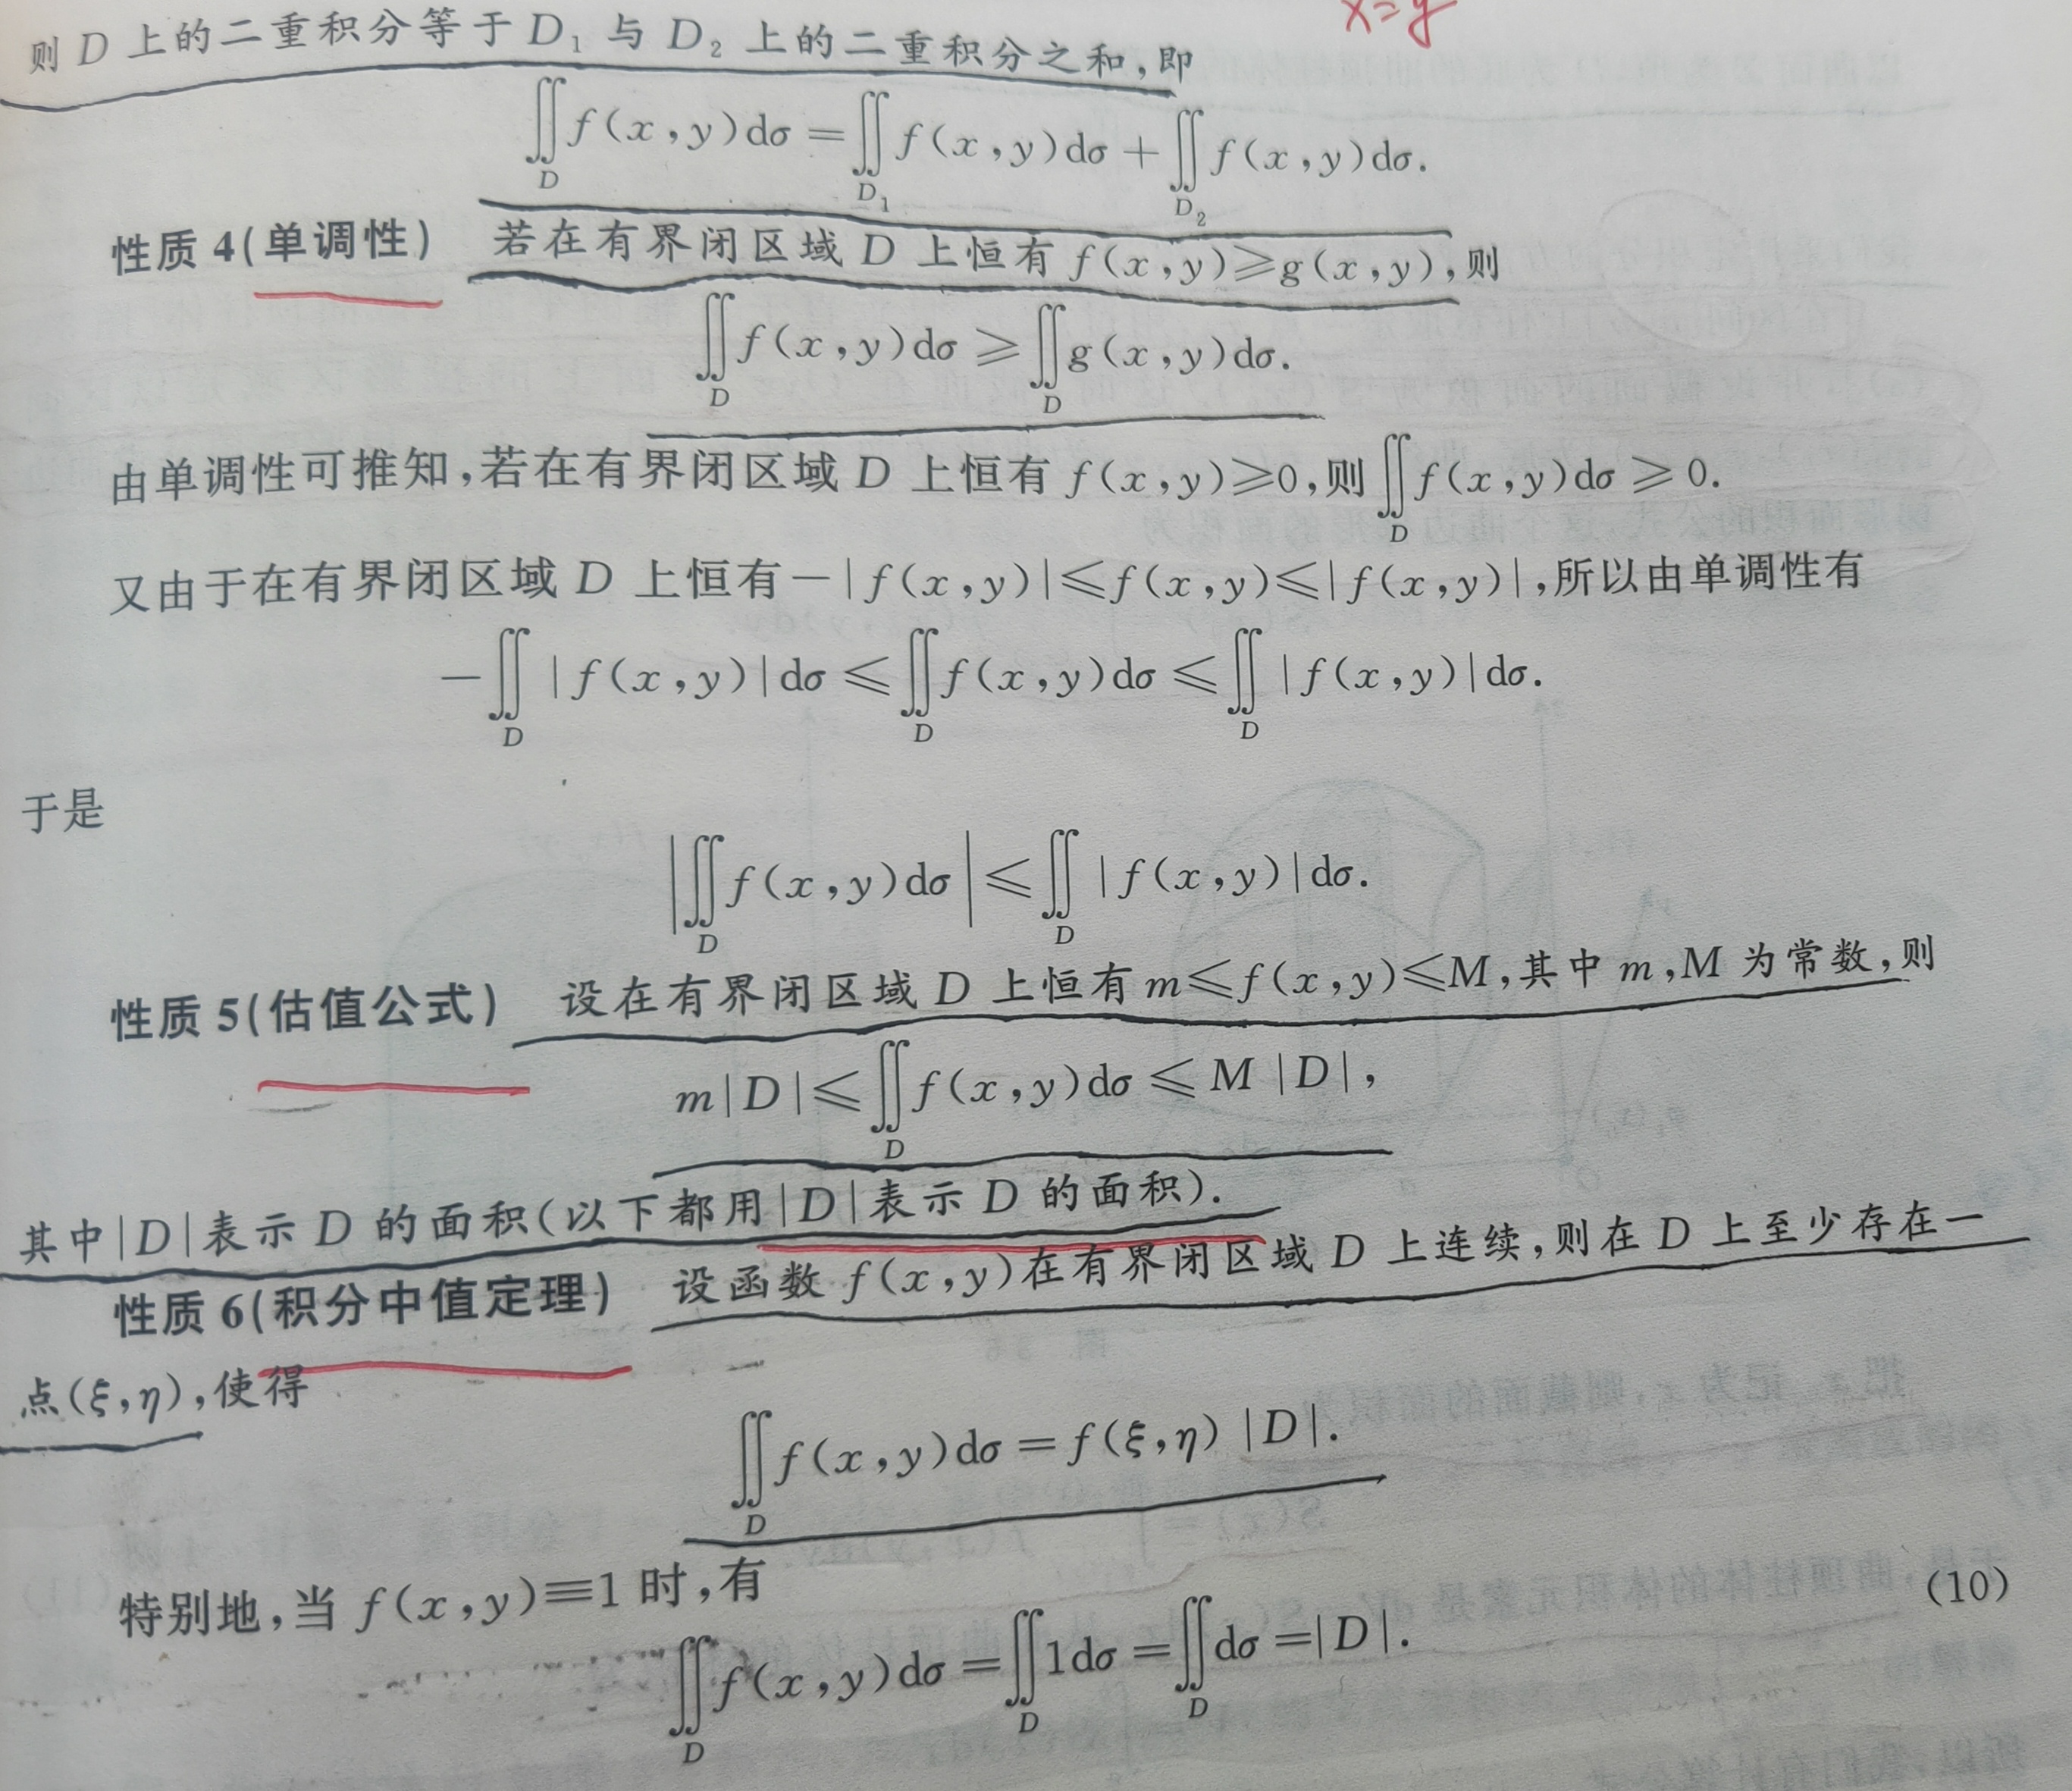 x=y
则 D 上的二重积分等于 D₁ 与 D₂ 上的二重积分之和,即
∬_D f(x,y)dσ=∬_{D₁} f(x,y)dσ+∬_{D₂} f(x,y)dσ.
性质 4(单调性) 若在有界闭区域 D 上恒有 f(x,y)≥g(x,y),则
∬_D f(x,y)dσ≥∬_D g(x,y)dσ.
由单调性可推知,若在有界闭区域 D 上恒有 f(x,y)≥0,则∬_D f(x,y)dσ≥0.
又由于在有界闭区域 D 上恒有-|f(x,y)|≤f(x,y)≤|f(x,y)|,所以由单调性有
-∬_D |f(x,y)|dσ≤∬_D f(x,y)dσ≤∬_D |f(x,y)|dσ.
于是
|∬_D f(x,y)dσ|≤∬_D |f(x,y)|dσ.
性质 5(估值公式) 设在有界闭区域 D 上恒有 m≤f(x,y)≤M,其中 m,M 为常数,则
m|D|≤∬_D f(x,y)dσ≤M|D|,
其中|D|表示 D 的面积(以下都用|D|表示 D 的面积).
性质 6(积分中值定理) 设函数 f(x,y)在有界闭区域 D 上连续,则在 D 上至少存在一
点(ξ,η),使得
∬_D f(x,y)dσ=f(ξ,η)|D|.
特别地,当 f(x,y)≡1 时,有
∬_D f(x,y)dσ=∬_D 1dσ=∬_D dσ=|D|. (10)